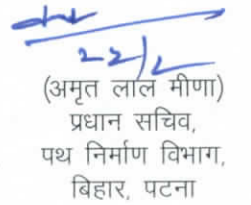 22/2
(अमृत लाल मीणा)
प्रधान सचिव,
पथ निर्माण विभाग,
बिहार, पटना